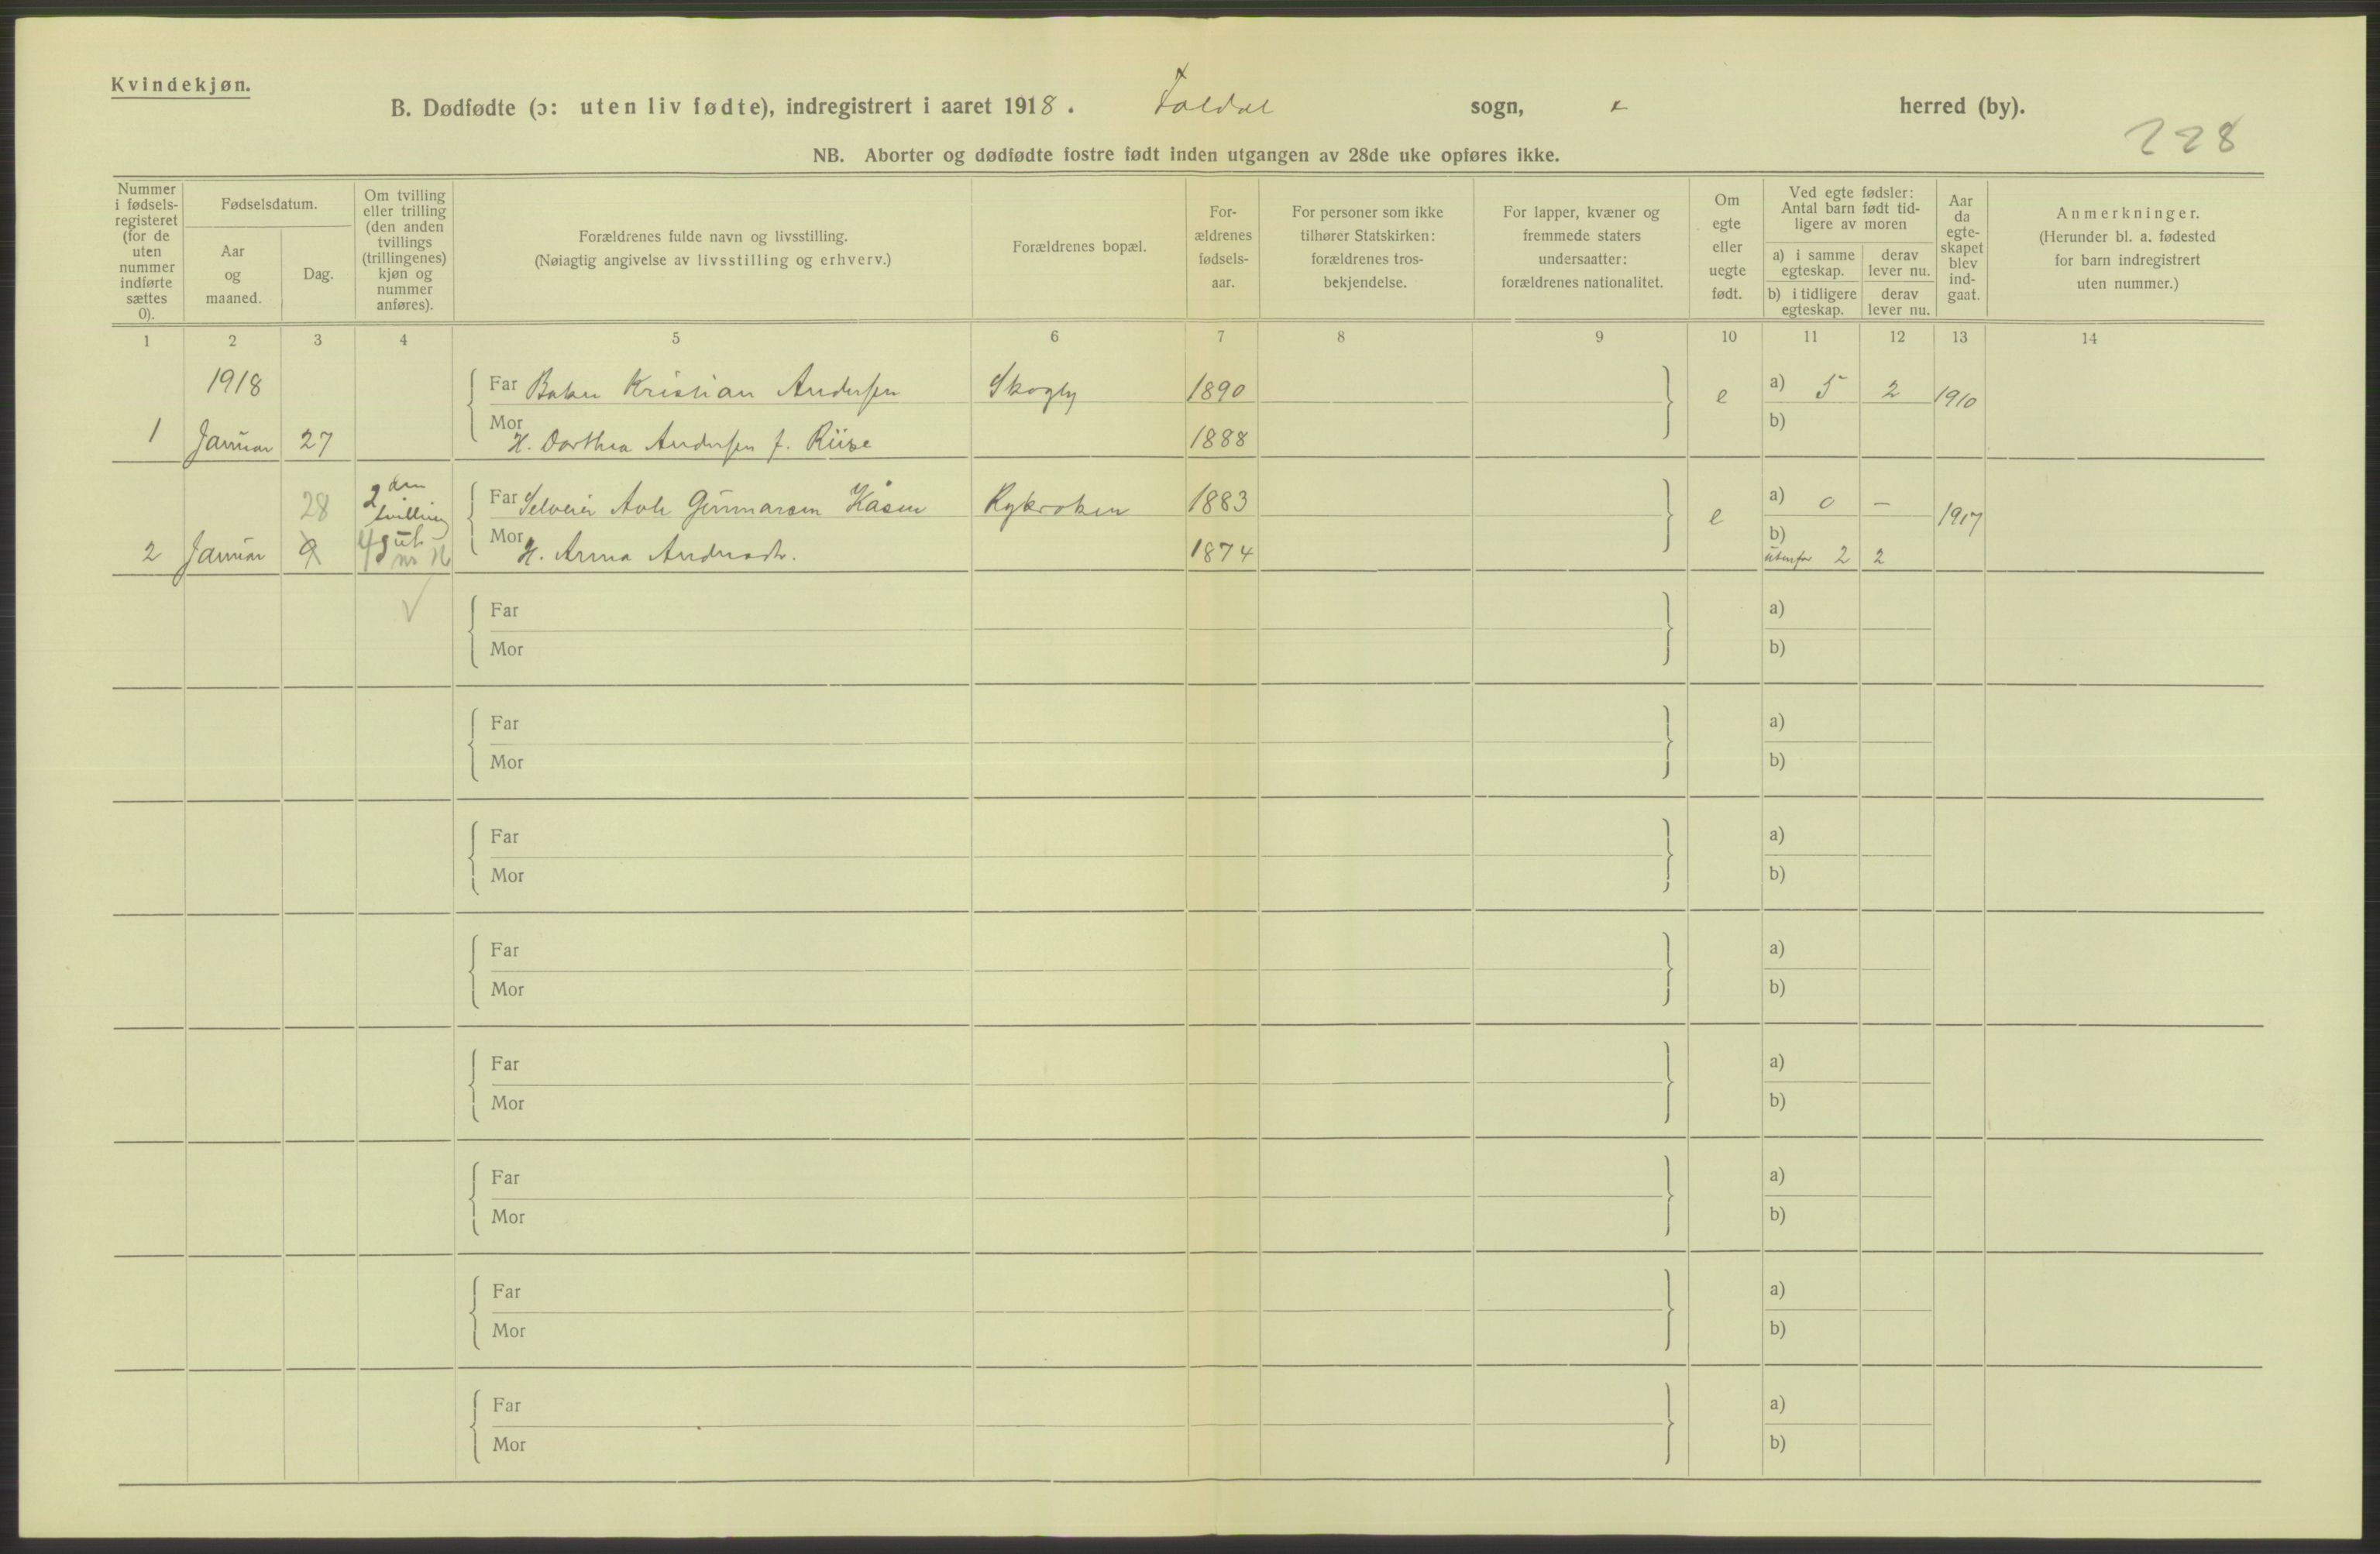 Kvindekjøn.
B. Dødfødte (ɔ: uten liv fødte), indregistrert i aaret 1918. Foldal sogn, herred (by).
228
NB. Aborter og dødfødte fostre født inden utgangen av 28de uke opføres ikke.
Nummer i fødsels-registeret (for de uten nummer indførte sættes 0).
Fødselsdatum.
Aar og maaned.
Dag.
Om tvilling eller trilling (den anden tvillings (trillingenes) kjøn og nummer anføres).
Forældrenes fulde navn og livsstilling.
(Nøiagtig angivelse av livsstilling og erhverv.)
Forældrenes bopæl.
For-ældrenes fødsels-aar.
For personer som ikke tilhører Statskirken: forældrenes tros-bekjendelse.
For lapper, kvæner og fremmede staters undersaatter: forældrenes nationalitet.
Om egte eller uegte født.
Ved egte fødsler: Antal barn født tid-ligere av moren
a) i samme egteskap.
derav lever nu.
b) i tidligere egteskap.
derav lever nu.
Aar da egte-skapet blev ind-gaat.
Anmerkninger.
(Herunder bl. a. fødested for barn indregistrert uten nummer.)
1 2 3 4 5 6 7 8 9 10 11 12 13 14
1918
Far Kristian Andersen Skogly 1890 e a) 5 2 1910
1 Januar 27 Mor H. Dorthea Andersen f. 1888 b)
28 2 den tvilling Far Gunnarsen Kåsen 1883 e a) 0 – 1917
2 Januar 9 gut Mor H. Anna 1874 b) utenfor 2 2
Far a)
Mor b)
Far a)
Mor b)
Far a)
Mor b)
Far a)
Mor b)
Far a)
Mor b)
Far a)
Mor b)
Far a)
Mor b)
Far a)
Mor b)